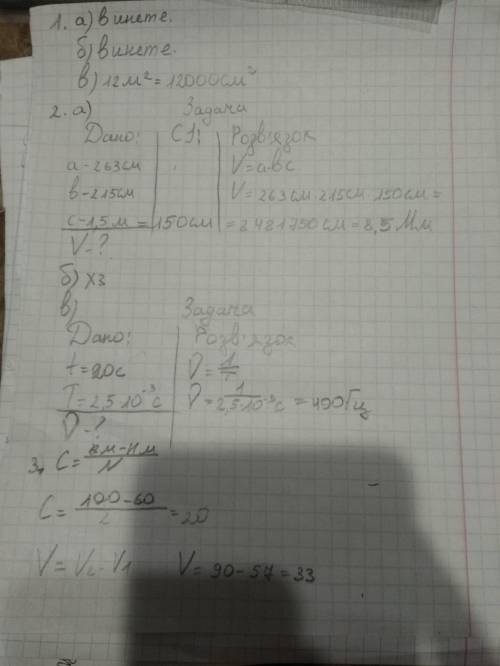 1. а) в инете.
б) в инете.
в) 12м² = 12000см²
2. а) Задача
Дано: СІ: Розв'язок
a - 263см V = a·b·c
b - 215см V = 263см · 215см · 150см =
c - 1,5 м = 150см = 8481750см = 8,5 Мм
V - ?
б) хз
в) Задача
Дано: Розв'язок
t = 20с ν = 1/T
T = 2,5·10⁻³ с ν = 1/2,5·10⁻³с = 400Гц
ν - ?
3. C = вм-нм/N
C = 100-60/2 = 20
V = V₂ - V₁ V = 90 - 57 = 33